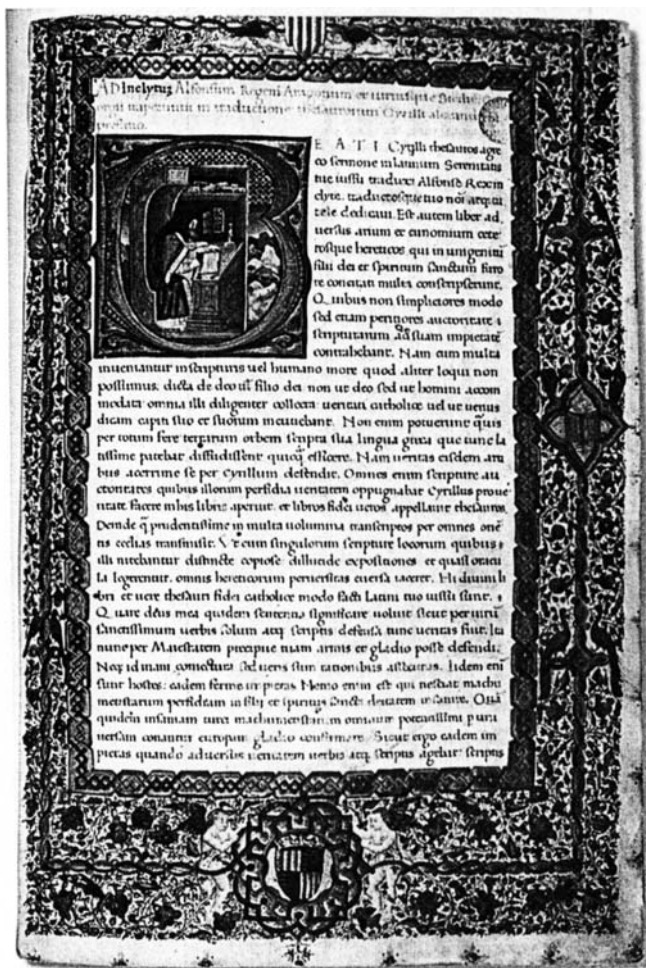 AD Inclytuz Alfonsum Regem Aragonum et utriusque Sicilie
in traductione thesaurorum Cyrilli
EATI Cyrilli thesauros agre
co sermone in latinum Serenitatis
tue iussu traduxi Alfonse Rex in
clyte. traductosque tuo nori atque tu
tele dedicaui. Est autem liber ad
uersus arium et eunomium cete
rosque hereticos qui in unigenitum
filii dei et spiritum sanctum
te concitati multa conscripserunt.
Quibus non simpliciores modo
sed etiam peritiores auctoritate
scripturarum ad suam impietate
contrahebant. Nam cum multa
inueniantur in scripturis uel humano more quod aliter loqui non
possumus. dicta de deo uel filio dei non ut deo sed ut homini accom
modata omnia illi diligenter collecta ueritati catholice uel ut uerius
dicam capiti suo et suorum Non enim potuerunt quis
per totum fere terrarum orbem scripta sua lingua greca que tunc la
tissime patebat diffudissent quicq efficere. Nam ueritas eisdem
bus acerrime se per Cyrillum defendit. Omnes enim scripture au
ctoritates quibus illorum perfidia ueritatem oppugnabat Cyrillus
libris aperuit. et libros fidei appellauit thesauros.
Deinde q prudentissime in multa uolumina transcriptos per omnes
tis eccłias transmisit. Vt cum singulorum scripture locorum quibus
illi nitebantur distincte copiose dilucide expositiones et quasi oracu
la legerentur. omnis hereticorum peruersitas euersa iaceret. Hi diuini li
bri et uere thesauri fidei catholice modo facti latini tuo iussu sunt.
Quare deus mea quidem sententia significare uoluit sicut per uirum
sanctissimum uerbis solum atq scriptis defensa tunc ueritas fuit. Ita
nunc per Maiestatem precipue tuam armis et gladio posse defendi.
Neq id inani coniectura sed ueris sum rationibus Iidem eni
sunt hostes: eadem ferme Nemo enim est qui nesciat machu
mettarum perfidiam in filii et spiritus sancti deitatem insanire. Qua
quidem insaniam turci omnium potentissimi
uersam conantur europam gladio confirmare. Sicut ergo eadem im
pietas quando aduersus ueritatem uerbis atq scriptis agebat scriptis